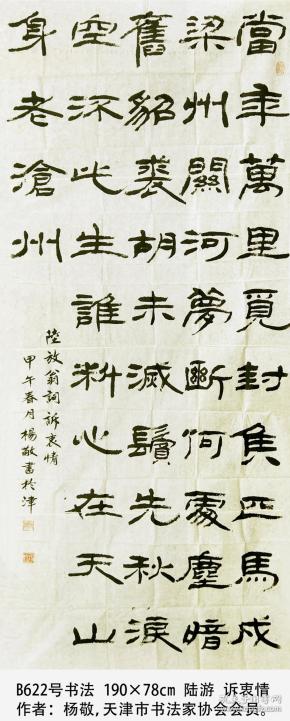 當年萬里覓封侯匹馬戍
梁州關河夢斷何處塵暗
舊貂裘胡未滅鬢先秋淚
空流此生誰料心在天山
身老滄州
陸放翁詞訴衷情
甲午春月楊敬書於津
B622号书法 190×78cm 陆游 诉衷情
作者: 杨敬,天津市书法家协会会员